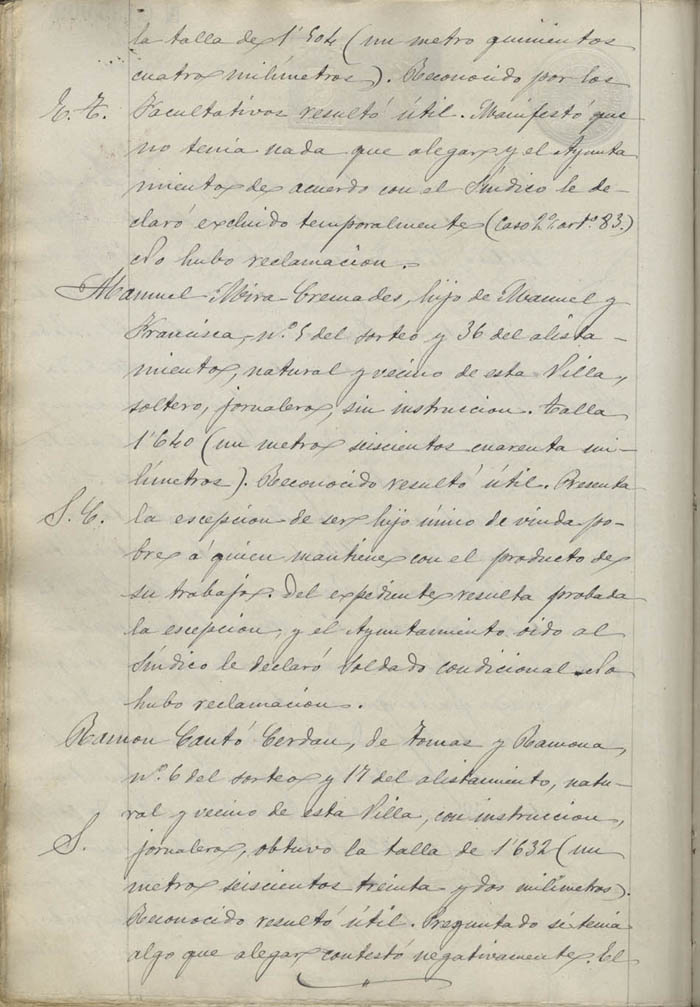 la talla de 1'504 (un metro quinientos
cuatro milímetros). Reconocido por los
E. T. Facultativos resultó útil. Manifestó que
no tenia nada que alegar y el Ayunta
miento de acuerdo con el Síndico le de-
claró excluido temporalmente (Caso 2º art.º 83.)
No hubo reclamacion.=
Manuel Mira Cremades, hijo de Manuel y
Francisca, nº. 5 del sorteo y 36 del alista-
miento, natural y vecino de esta Villa,
soltero, jornalero, sin instruccion. Talla
1'640 (un metro seiscientos cuarenta mi-
límetros). Reconocido resultó útil. Presenta
S. C. la escepcion de ser hijo único de viuda po-
bre á quien mantiene con el producto de
su trabajo. Del expediente resulta probada
la escepcion, y el Ayuntamiento oido al
Síndico le declaró soldado condicional. No
hubo reclamacion.
Ramon Cantó Cerdan, de Tomas y Ramona,
nº. 6 del sorteo y 17 del alistamiento, natu-
ral y vecino de esta Villa, con instruccion,
S. jornalero, obtuvo la talla de 1'632 (un
metro seiscientos treinta y dos milímetros).
Reconocido resultó útil. Preguntado si tenia
algo que alegar contestó negativamente. El